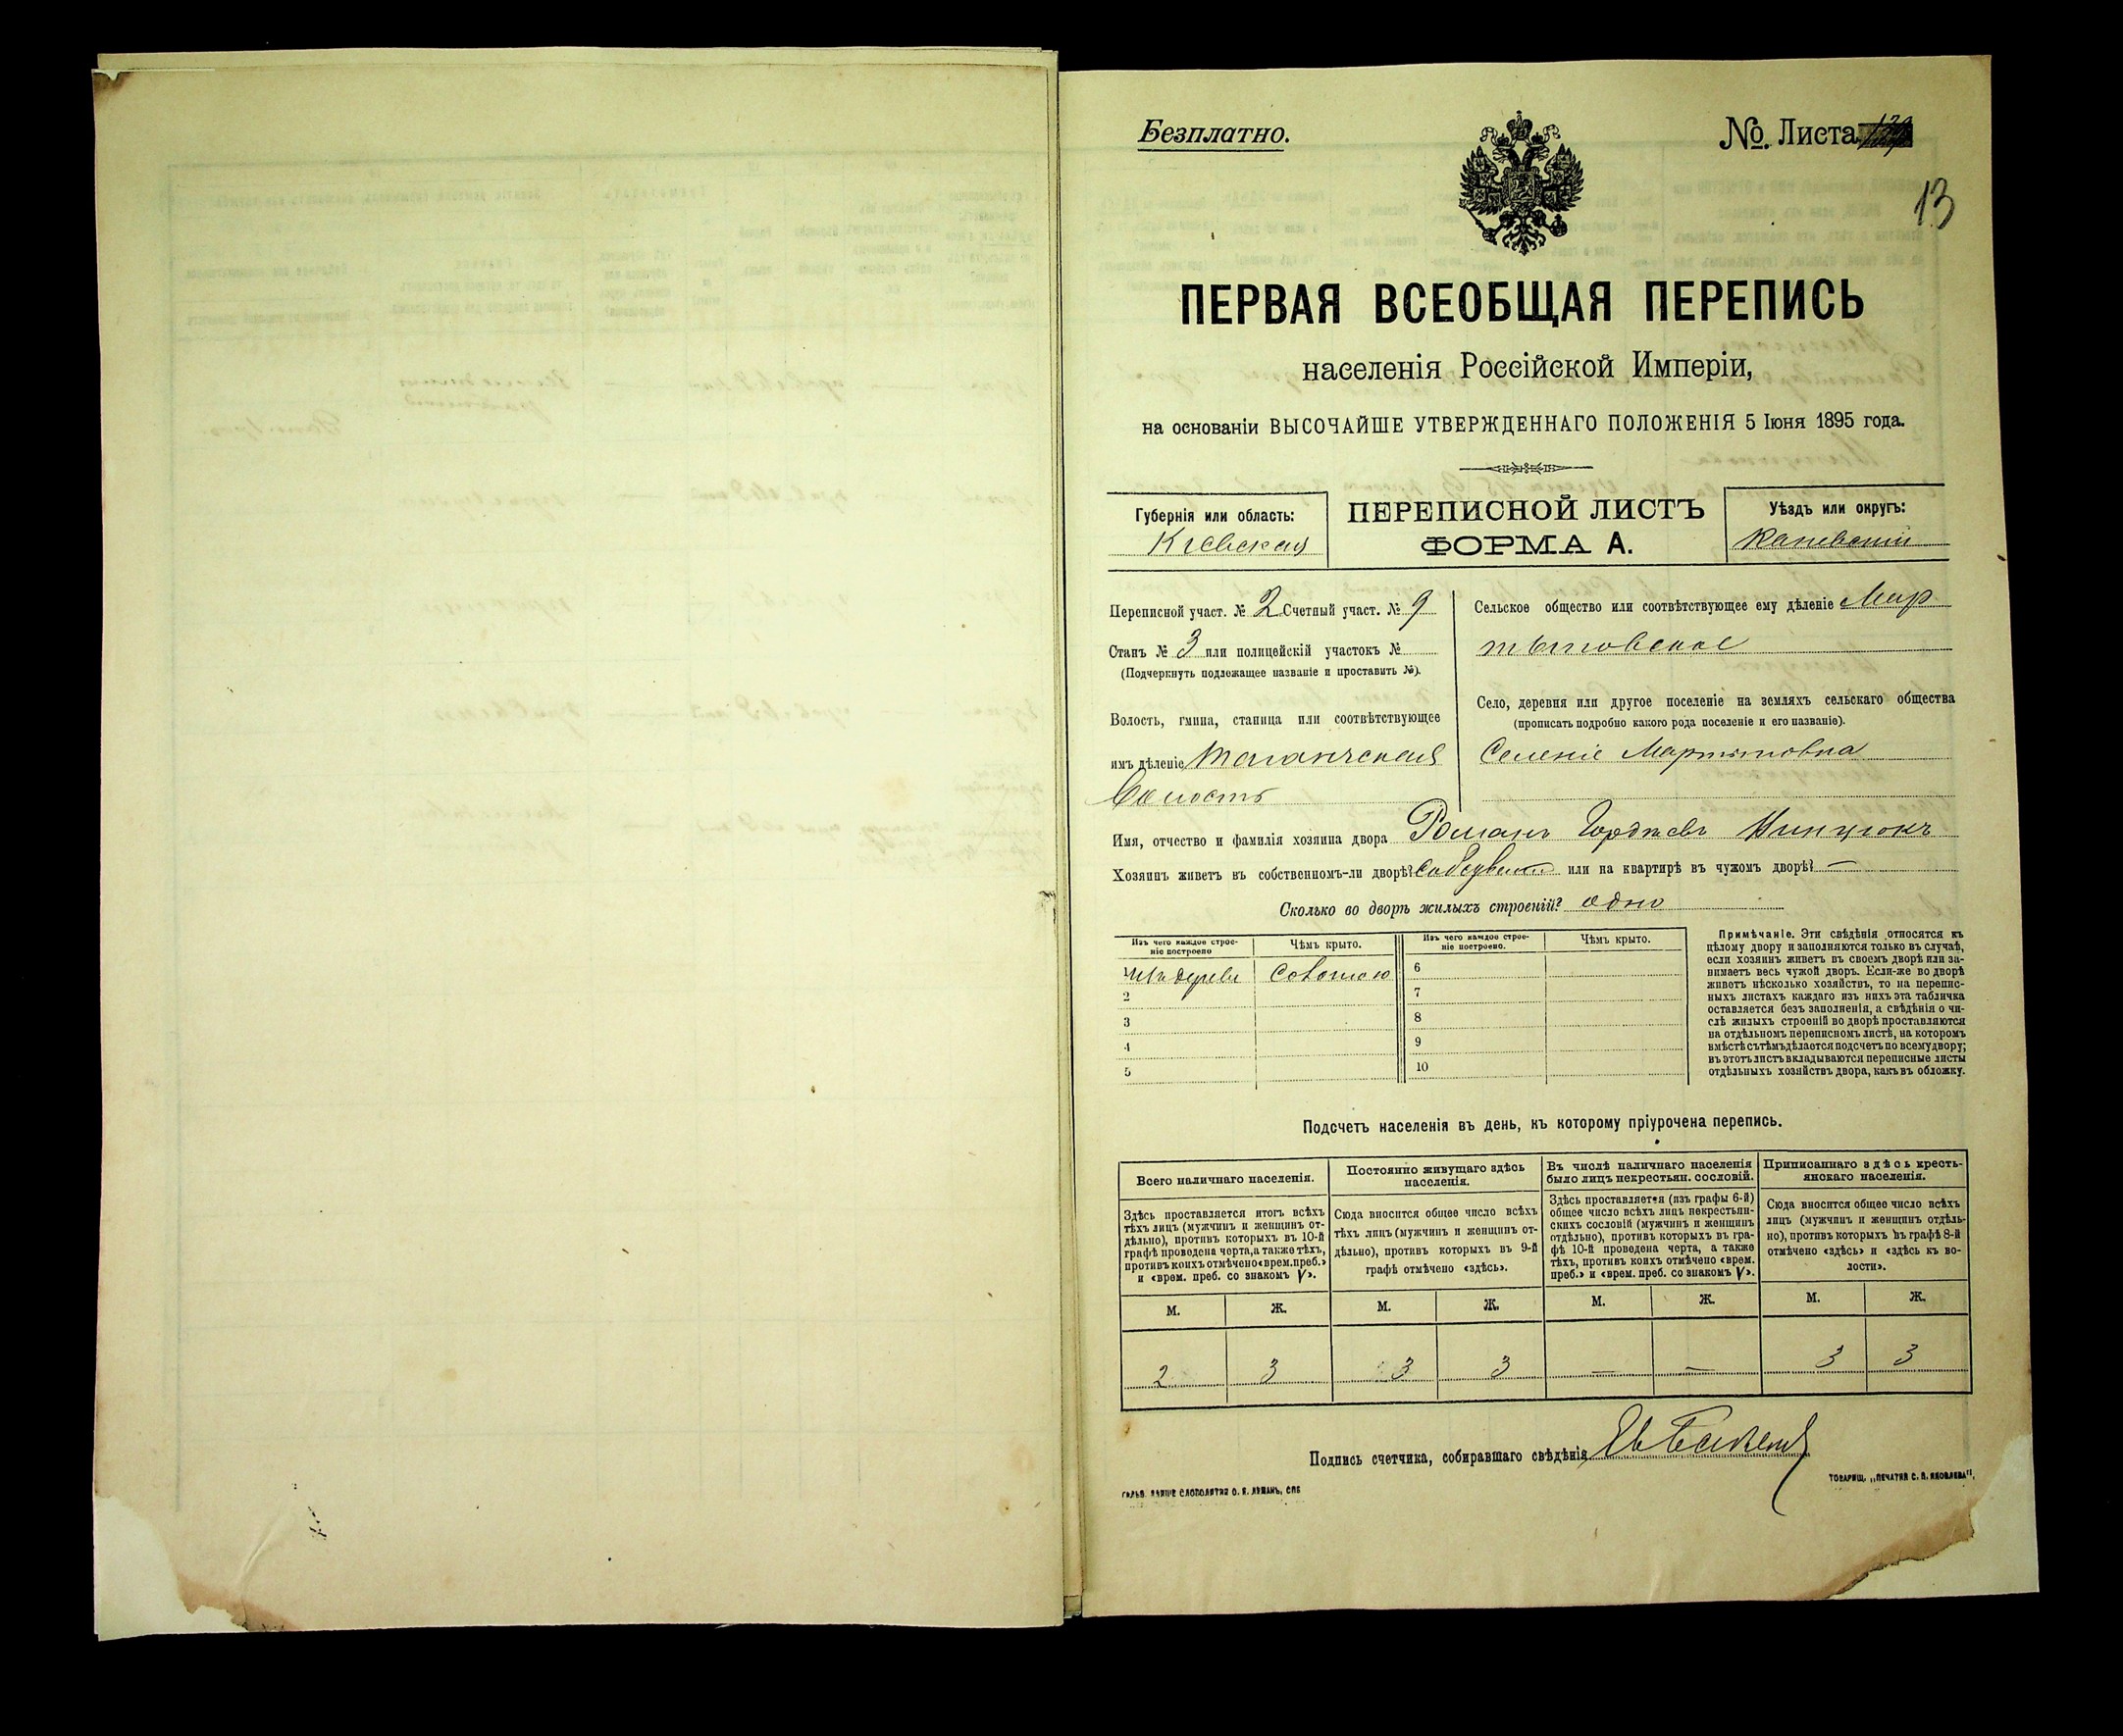 Безплатно.
№. Листа
13
ПЕРВАЯ ВСЕОБЩАЯ ПЕРЕПИСЬ
населенія Россійской Имперіи,
на основаніи ВЫСОЧАЙШЕ УТВЕРЖДЕННАГО ПОЛОЖЕНІЯ 5 Іюня 1895 года.
Губернія или область:
Кіевская
ПЕРЕПИСНОЙ ЛИСТЪ
ФОРМА А.
Уѣздъ или округъ:
Каневскій
Переписной участ. № 2 Счетный участ. № 9
Станъ № 3 или полицейскій участокъ №
(Подчеркнуть подлежащее названіе и проставить №).
Волость, гмина, станица или соотвѣтствующее
имъ дѣленіе Таганчская
Волость
Сельское общество или соотвѣтствующее ему дѣленіе Мар
тыновское
Село, деревня или другое поселеніе на земляхъ сельскаго общества
(прописать подробно какого рода поселеніе и его названіе).
Селеніе Мартыновка
Имя, отчество и фамилія хозяина двора Романъ Гордѣевъ
Хозяинъ живетъ въ собственномъ-ли дворѣ? или на квартирѣ въ чужомъ дворѣ? —
Сколько во дворѣ жилыхъ строеній? одно
Изъ чего каждое строе-
ніе построено
Чѣмъ крыто.
Изъ чего каждое строе-
ніе построено.
Чѣмъ крыто.
1 изъ дерева Соломою
2
3
4
5
6
7
8
9
10
Примѣчаніе. Эти свѣдѣнія относятся къ
цѣлому двору и заполняются только въ случаѣ,
если хозяинъ живетъ въ своемъ дворѣ или за-
нимаетъ весь чужой дворъ. Если-же во дворѣ
живетъ нѣсколько хозяйствъ, то на перепис-
ныхъ листахъ каждаго изъ нихъ эта табличка
оставляется безъ заполненія, а свѣдѣнія о чи-
слѣ жилыхъ строеній во дворѣ проставляются
на отдѣльномъ переписномъ листѣ, на которомъ
вмѣстѣ съ тѣмъ дѣлается подсчетъ по всему двору;
въ этотъ листъ вкладываются переписные листы
отдѣльныхъ хозяйствъ двора, какъ въ обложку.
Подсчетъ населенія въ день, къ которому пріурочена перепись.
Всего наличнаго населенія.
Здѣсь проставляется итогъ всѣхъ
тѣхъ лицъ (мужчинъ и женщинъ от-
дѣльно), противъ которыхъ въ 10-й
графѣ проведена черта, а также тѣхъ,
противъ коихъ отмѣчено «врем. преб.»
и «врем. преб. со знакомъ V».
Постоянно живущаго здѣсь
населенія.
Сюда вносится общее число всѣхъ
тѣхъ лицъ (мужчинъ и женщинъ от-
дѣльно), противъ которыхъ въ 9-й
графѣ отмѣчено «здѣсь».
Въ числѣ наличнаго населенія
было лицъ некрестьян. сословій.
Здѣсь проставляется (изъ графы 6-й)
общее число всѣхъ лицъ некрестьян-
скихъ сословій (мужчинъ и женщинъ
отдѣльно), противъ которыхъ въ гра-
фѣ 10-й проведена черта, а также
тѣхъ, противъ коихъ отмѣчено «врем.
преб.» и «врем. преб. со знакомъ V».
Приписаннаго здѣсь кресть-
янскаго населенія.
Сюда вносится общее число всѣхъ
лицъ (мужчинъ и женщинъ отдѣль-
но), противъ которыхъ въ графѣ 8-й
отмѣчено «здѣсь» и «здѣсь къ во-
лости».
М. Ж. М. Ж. М. Ж. М. Ж.
2 3 3 3 — — 3 3
Подпись счетчика, собиравшаго свѣдѣнія
ТОВАРИЩ. „ПЕЧАТНЯ С. П. ЯКОВЛЕВА“,